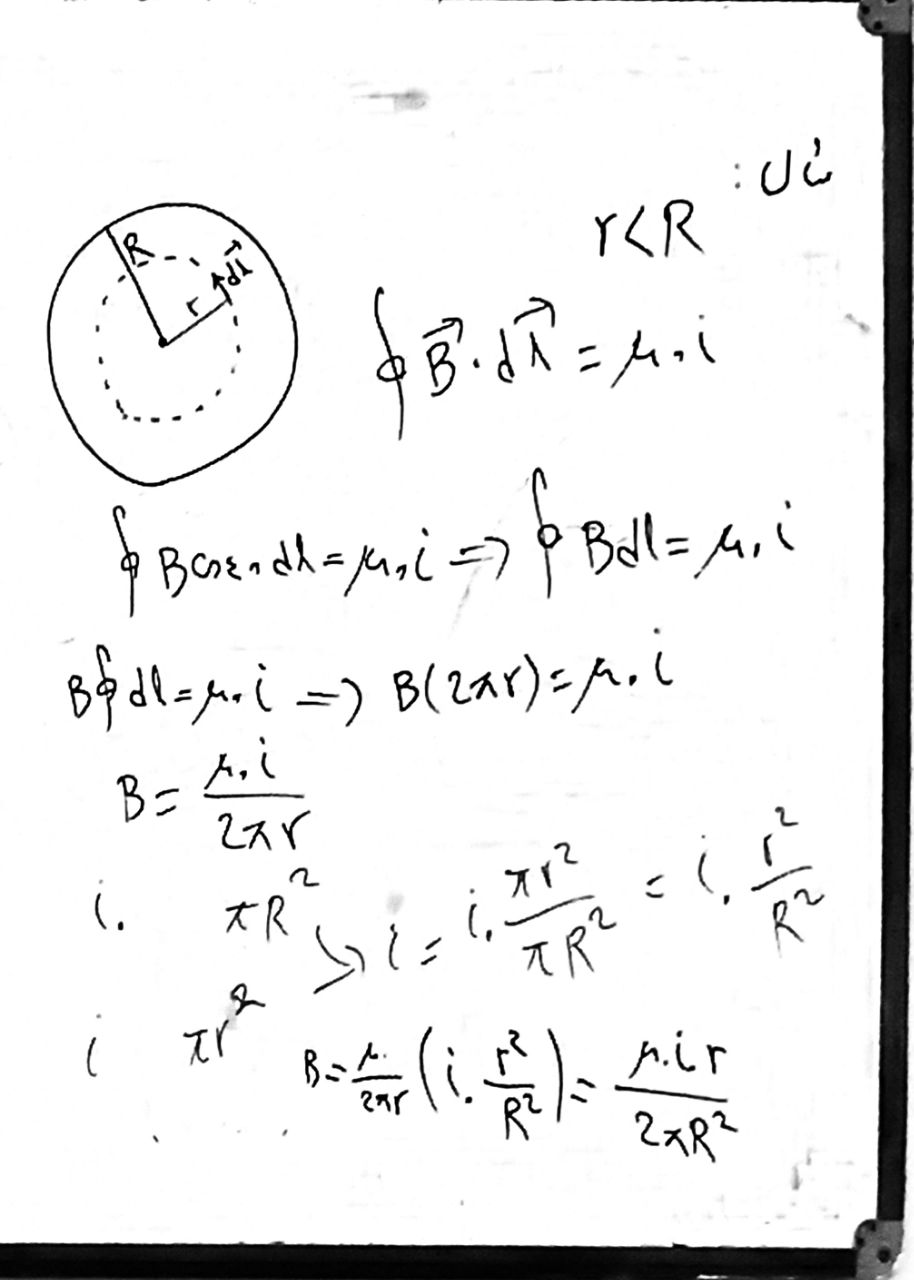 الف:
r<R
R
r
dl⃗
∮ B⃗ · dl⃗ = μ₀ i
∮ B cos 0 dl = μ₀ i ⇒ ∮ B dl = μ₀ i
B ∮ dl = μ₀ i ⇒ B(2πr) = μ₀ i
B = μ₀ i / 2πr
i₀ πR² ↘ i = i₀ πr² / πR² = i₀ r² / R²
i πr²
B = μ₀ / 2πr (i₀ r² / R²) = μ₀ i₀ r / 2πR²